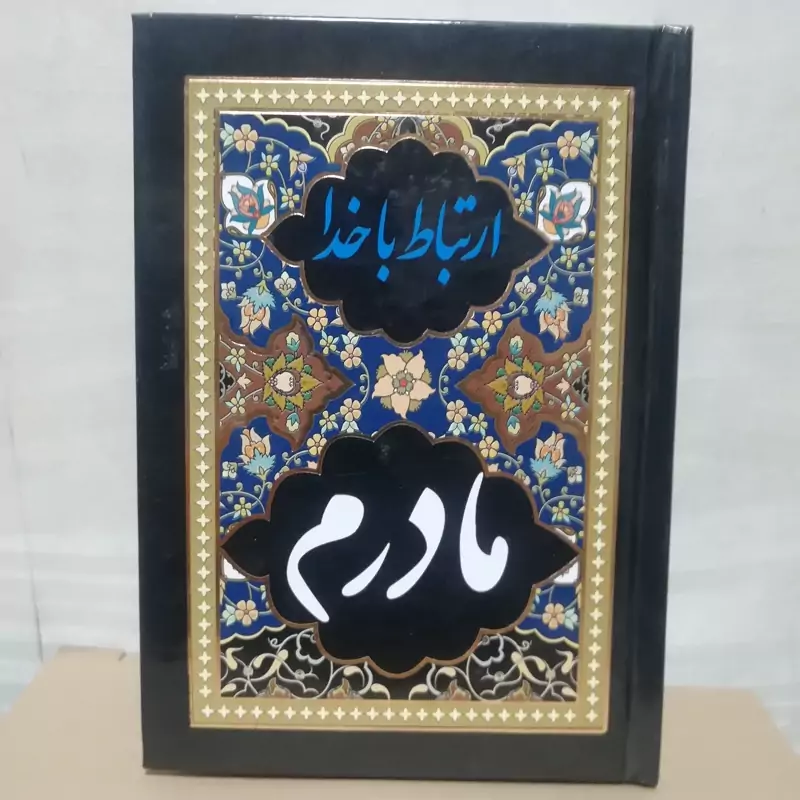 ارتباط با خدا
مادرم